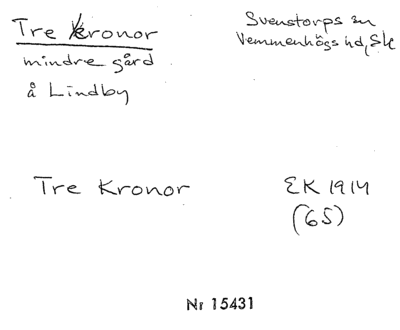 Tre Kronor
mindre gård
å Lindby
Svenstorps sn
Vemmenhögs hd, Sk
Tre Kronor
EK 1914
(65)
Nr 15431